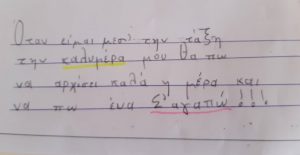 Όταν είμαι μεσ' την τάξη
την καλημέρα μου θα πω
να αρχίσει καλά η μέρα και
να πω ένα Σ'αγαπώ!!!